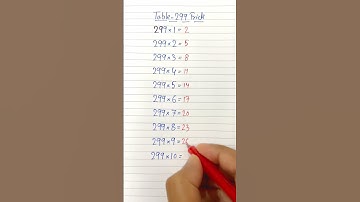 Table-299 Trick
299×1=2
299×2=5
299×3=8
299×4=11
299×5=14
299×6=17
299×7=20
299×8=23
299×9=26
299×10=